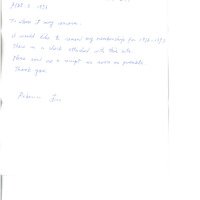 To whom I may concern,
I would like to renew my membership for
There is a check attached with this note.
Please send me a receipt as soon as possible.
Thank you.